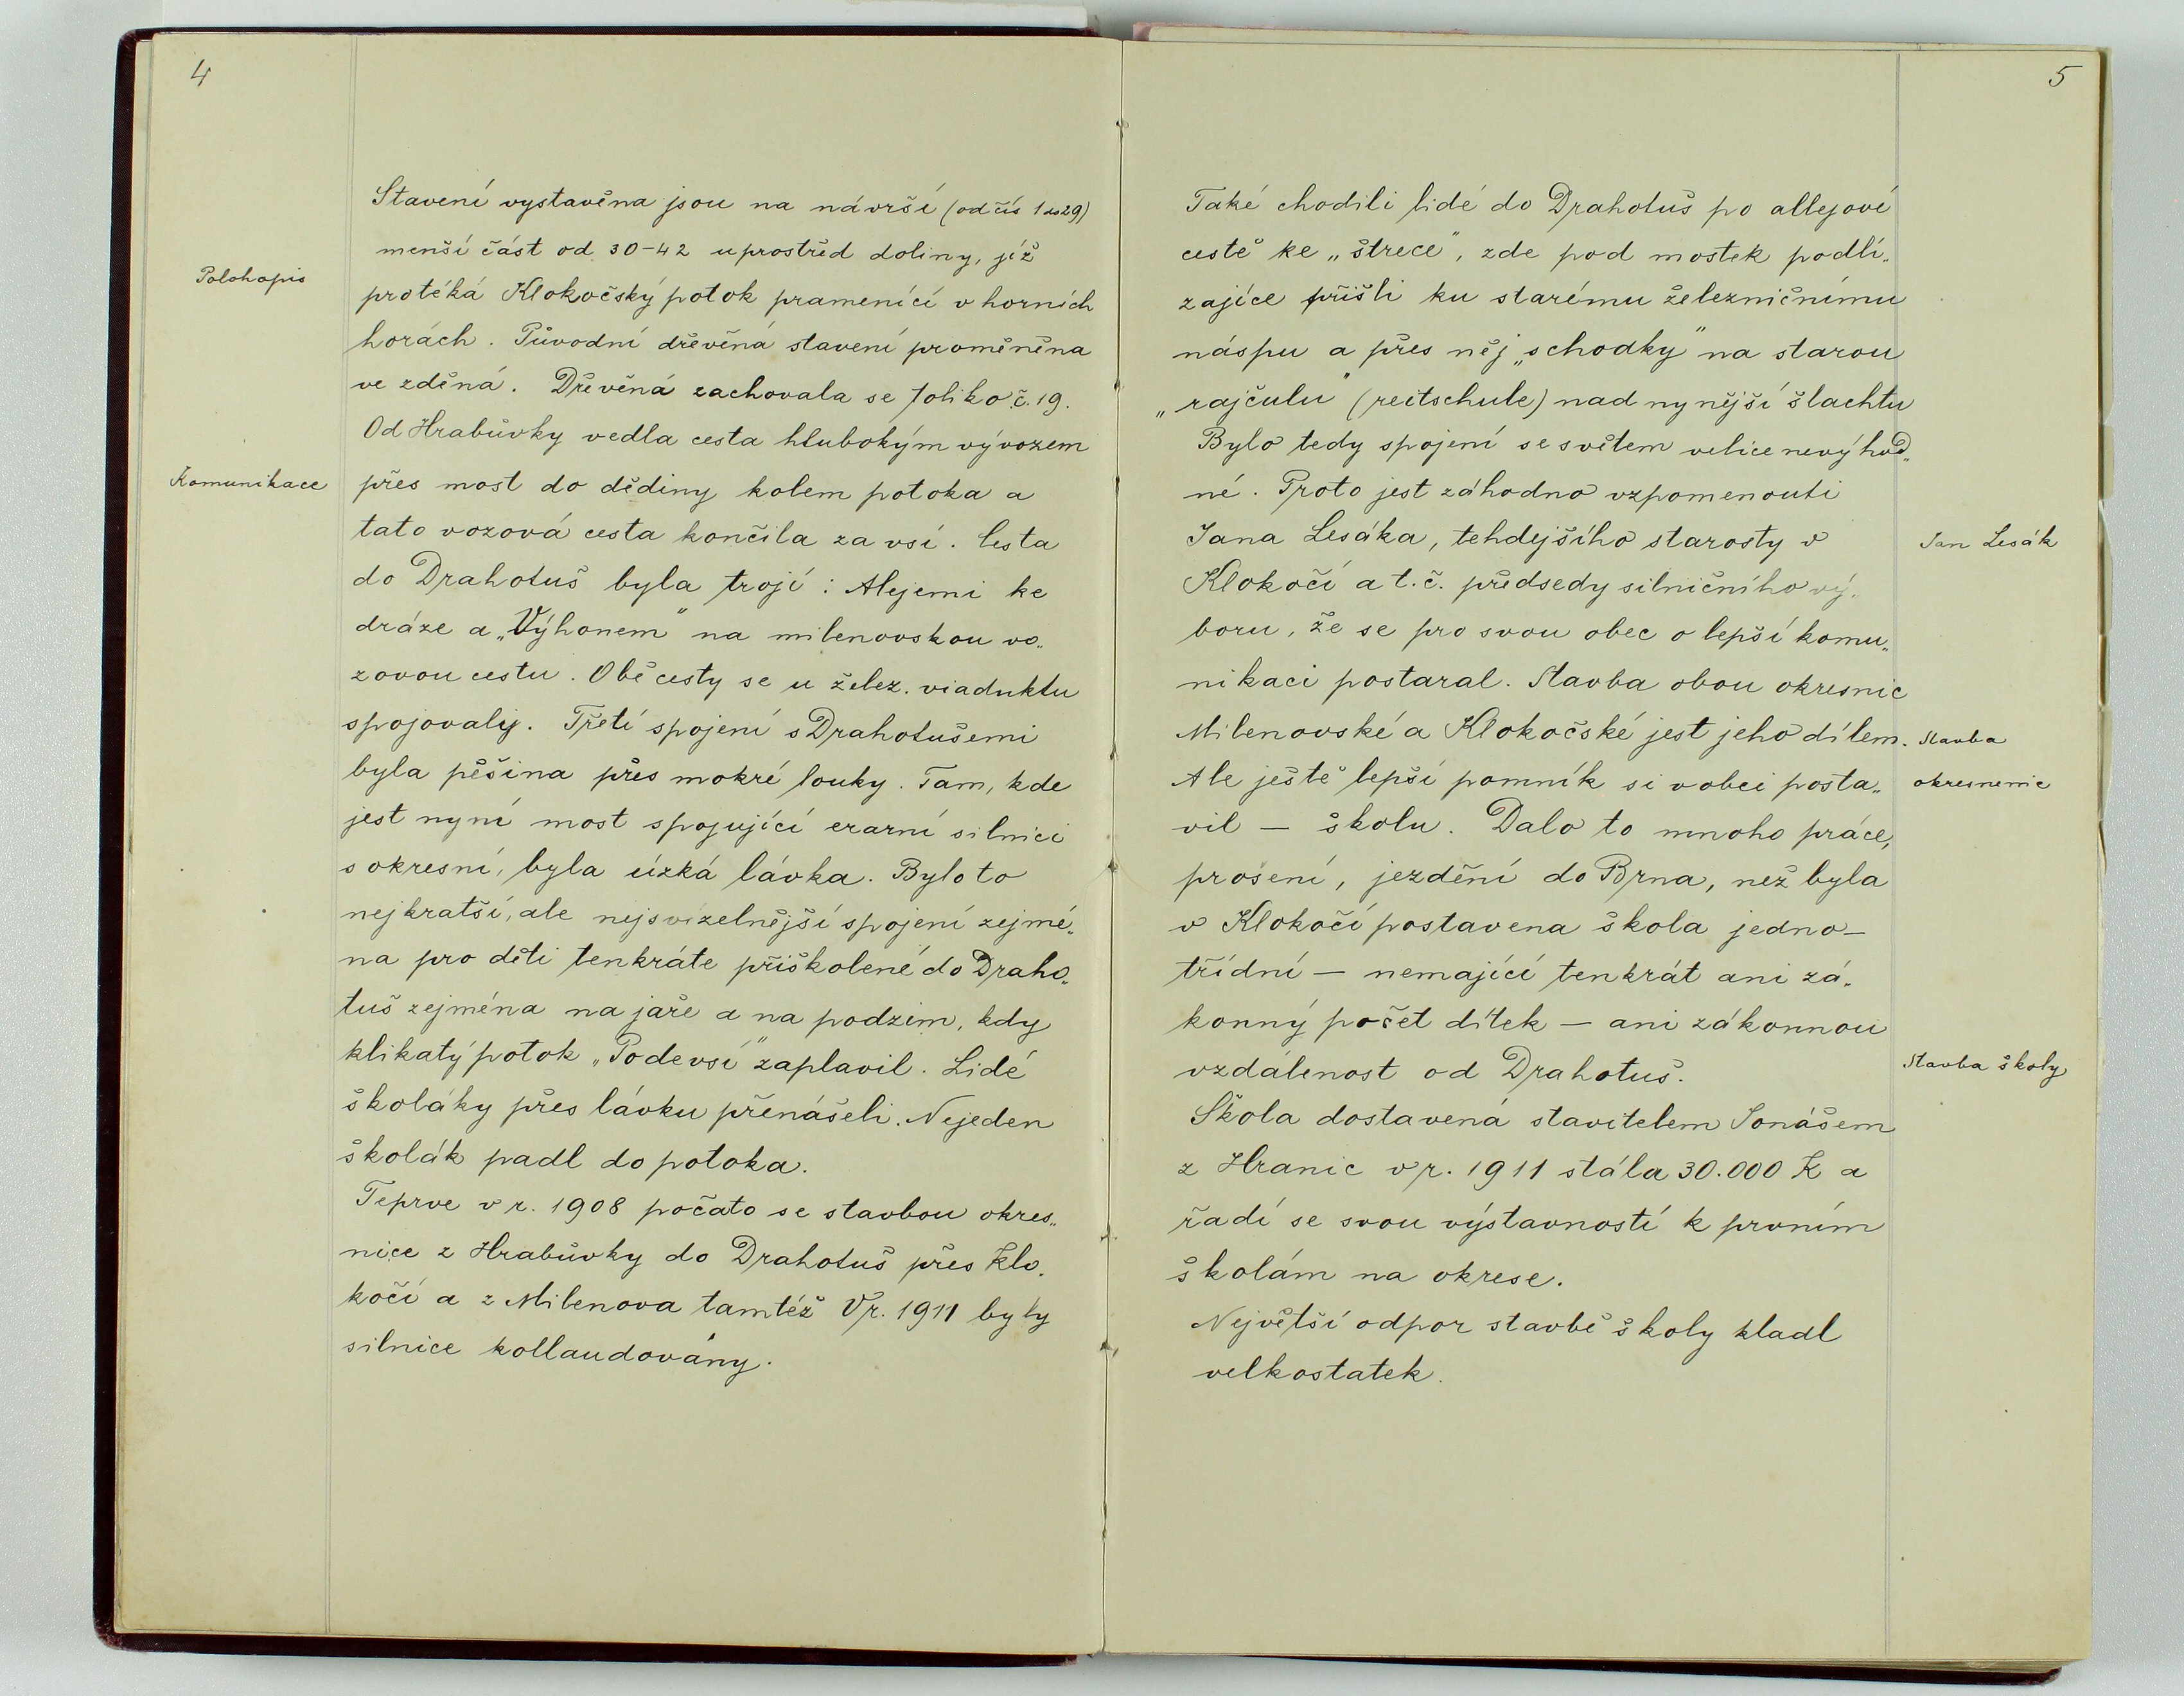 4
Stavení vystavěna jsou na návrší (od čís 1 do 29)
menší část od 30-42 uprostřed doliny, jíž
Polohopis
protéká Klokočský potok pramenící v horních
horách. Původní dřevěná stavení proměněna
ve zděná. Dřevěná zachovala se toliko č. 19.
Od Hrabůvky vedla cesta hlubokým vývozem
Komunikace
přes most do dědiny kolem potoka a
tato vozová cesta končila za vsí. Cesta
do Drahotuš byla trojí: Alejemi ke
dráze a „Výhonem" na milenovskou vo„
zovou cestu. Obě cesty se u želez. viaduktu
spojovaly. Třetí spojení s Drahotušemi
byla pěšina přes mokré louky. Tam, kde
jest nyní most spojující erarní silnici
s okresní, byla úzká lávka. Bylo to
nejkratší, ale nejsvízelnější spojení zejmé„
na pro děti tenkráte přiškolené do Draho„
tuš zejména na jaře a na podzim, kdy
klikatý potok „Podevsí" zaplavil. Lidé
školáky přes lávku přenášeli. Nejeden
školák padl do potoka.
Teprve v r. 1908 počato se stavbou okres„
nice z Hrabůvky do Drahotuš přes Klo„
kočí a z Milenova tamtéž V r. 1911 byly
silnice kollaudovány.
5
Také chodili lidé do Drahotuš po allejové
cestě ke „štrece", zde pod mostek podlí„
zajíce přišli ku starému železničnímu
náspu a přes něj „schodky" na starou
„rajčulu" (reitschule) nad nynější šlachtu
Bylo tedy spojení se světem velice nevýhod„
né. Proto jest záhodno vzpomenouti
Jana Lesáka, tehdejšího starosty v
Jan Lesák
Klokočí a t.č. předsedy silničního vý„
boru, že se pro svou obec o lepší komu„
nikaci postaral. Stavba obou okresnic
Milenovské a Klokočské jest jeho dílem.
Stavba
Ale ještě lepší pomník si v obci posta„
okresnenic
vil — školu. Dalo to mnoho práce,
prosení, jezdění do Brna, než byla
v Klokočí postavena škola jedno-
třídní — nemající tenkrát ani zá„
konný počet dítek — ani zákonnou
vzdálenost od Drahotuš.
Stavba školy
Škola dostavená stavitelem Jonášem
z Hranic v r. 1911 stála 30.000 K a
řadí se svou výstavností k prvním
školám na okrese.
Největší odpor stavbě školy kladl
velkostatek.